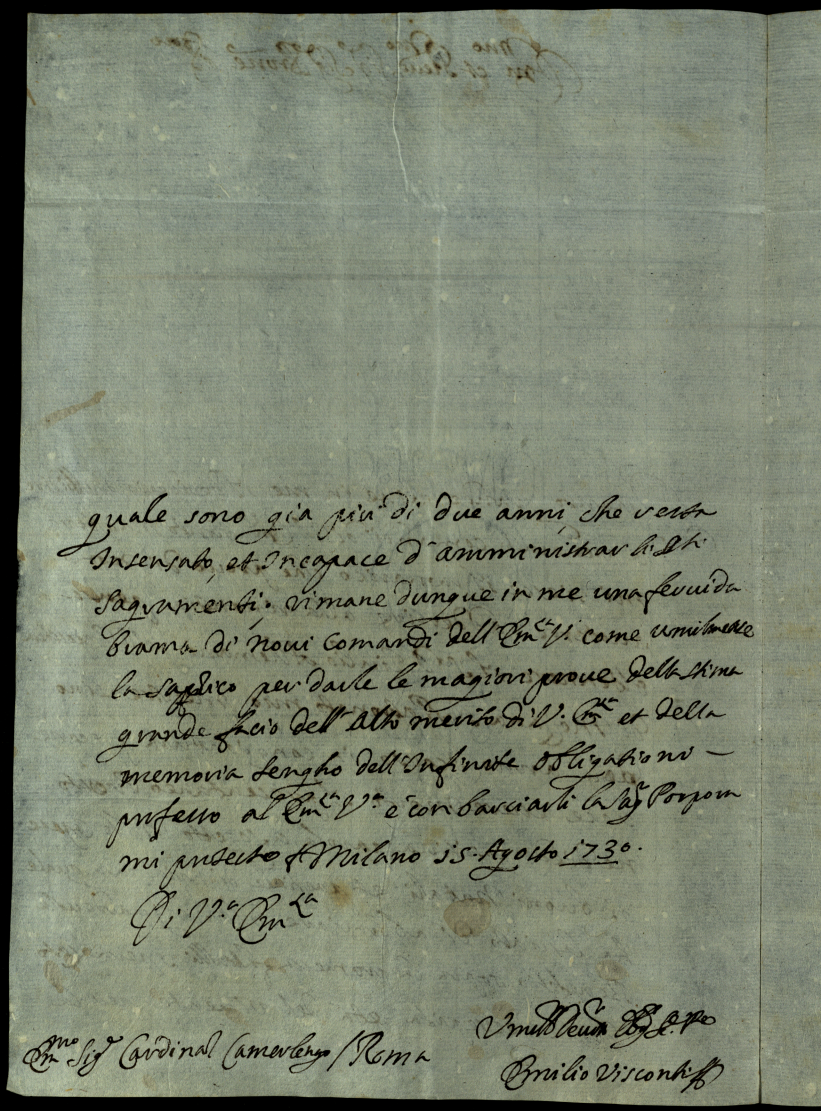 quale sono gia piu di due anni, che resta
Insensato, et Incapace d'amministrar li
Sagramenti; rimane dunque in me una fervida
brama di novi comandi dell' Em.za V. come umilmente
la suplico per darle le magiori prove della stima
grande facio dell' Alto merito di V. Em.za et della
memoria tengho dell' Infinite obligationi –
profesto al Em.za V.a e con basciarli la Sag. Porpora
mi protesto Milano 15. Agosto 1730.
Di V.a Em.za
Em.mo Sig.r Cardinal Camerlengo / Roma
Emilio Visconti